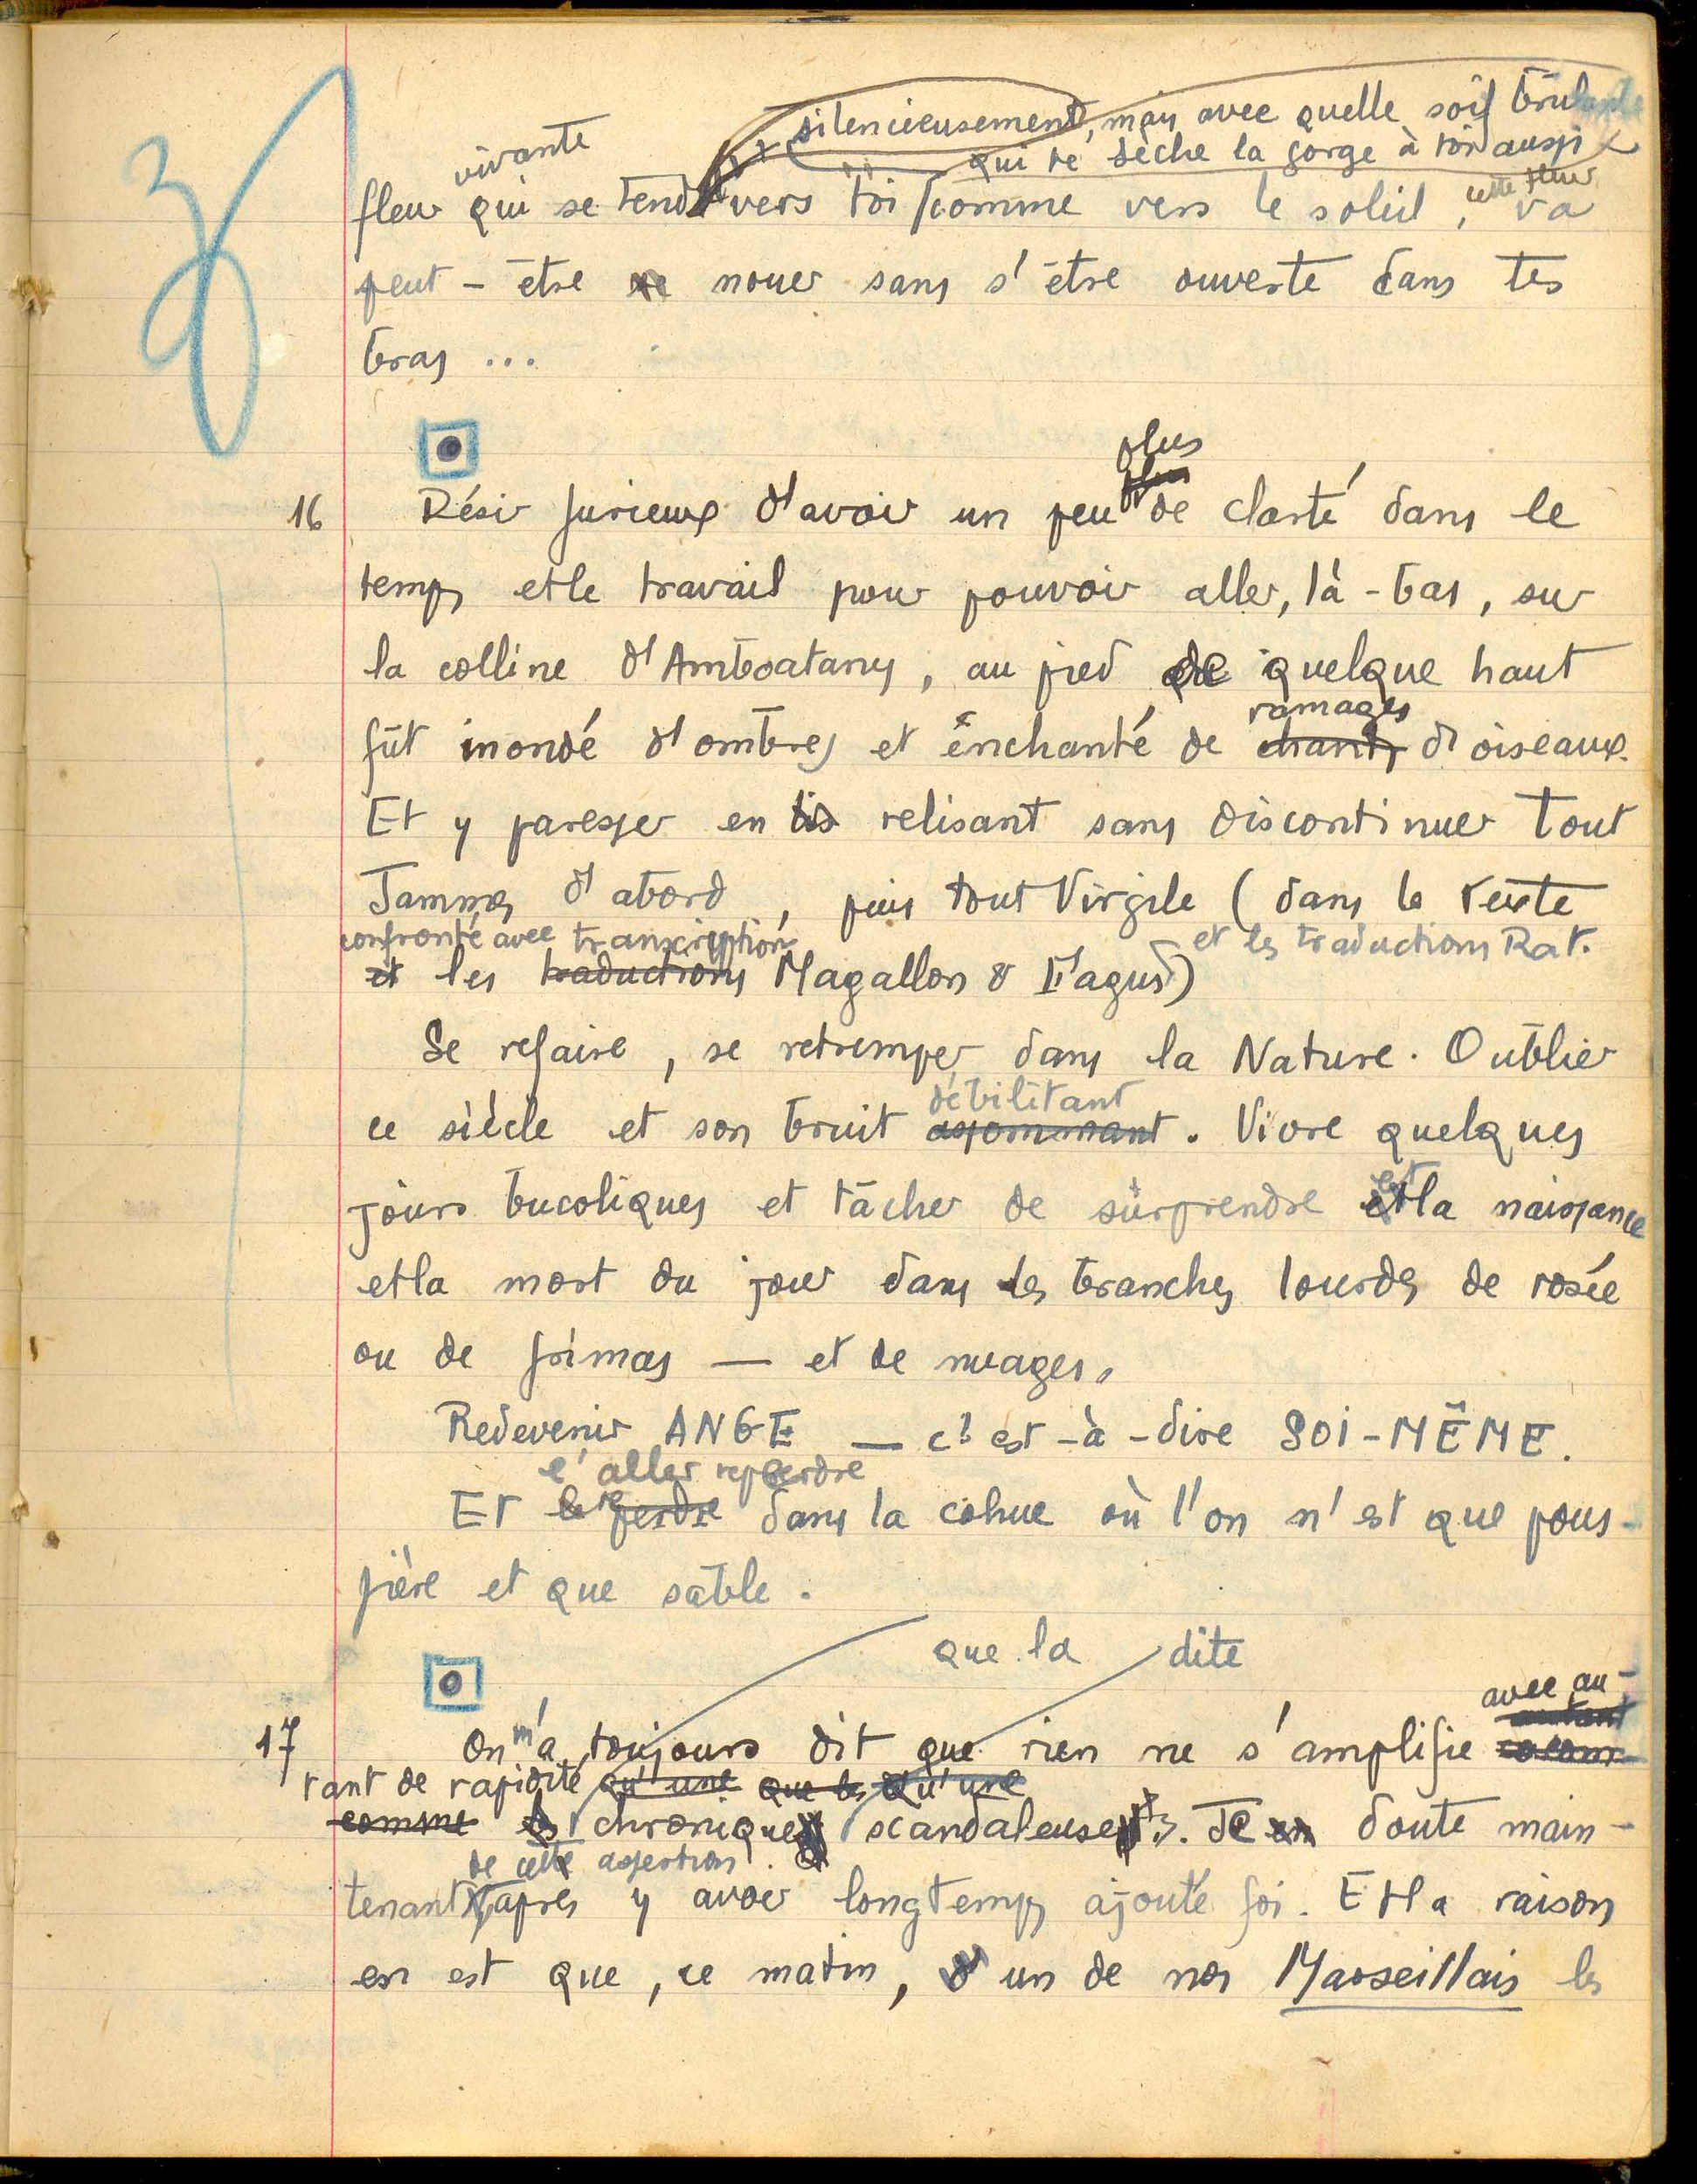 silencieusement, mais avec quelle soif brulante
qui te sèche la gorge à toi aussi
vivante
fleur qui se tend vers toi comme vers le soleil, cette fleur va
peut-être se nouer sans s'être ouverte dans tes
bras ...
plus
16 Désir furieux d'avoir un peu plus de clarté dans le
temps et le travail pour pouvoir aller, là-bas, sur
la colline d'Amboatany, au pied de quelque haut
ramages
fût inondé d'ombres et enchanté de chants d'oiseaux.
Et y paresser en lis relisant sans discontinuer tout
Jammes d'abord, puis tout Virgile (dans le texte
confronté avec transcriptions et les traductions Rat.
et les traductions Magallon & Fagus)
Se refaire, se retremper dans la Nature. Oublier
débilitant
ce siècle et son bruit assommant. Vivre quelques
jours bucoliques et tâcher de surprendre et la naissance
et la mort du jour dans les branches lourdes de rosée
ou de frimas — et de nuages.
Redevenir ANGE — c'est-à-dire SOI-MÊME.
l'aller reperdre
Et le reperdre dans la cohue où l'on n'est que pous-
sière et que sable.
que la dite
avec au-
autant
17 On m'a toujours dit que rien ne s'amplifie
tant de rapidité qu'une que les qu'une
comme les chroniques scandaleuses. Je en doute main-
de cette assertion.
tenant, après y avoir longtemps ajouté foi. Et la raison
en est que, ce matin, d'un de nos Marseillais les